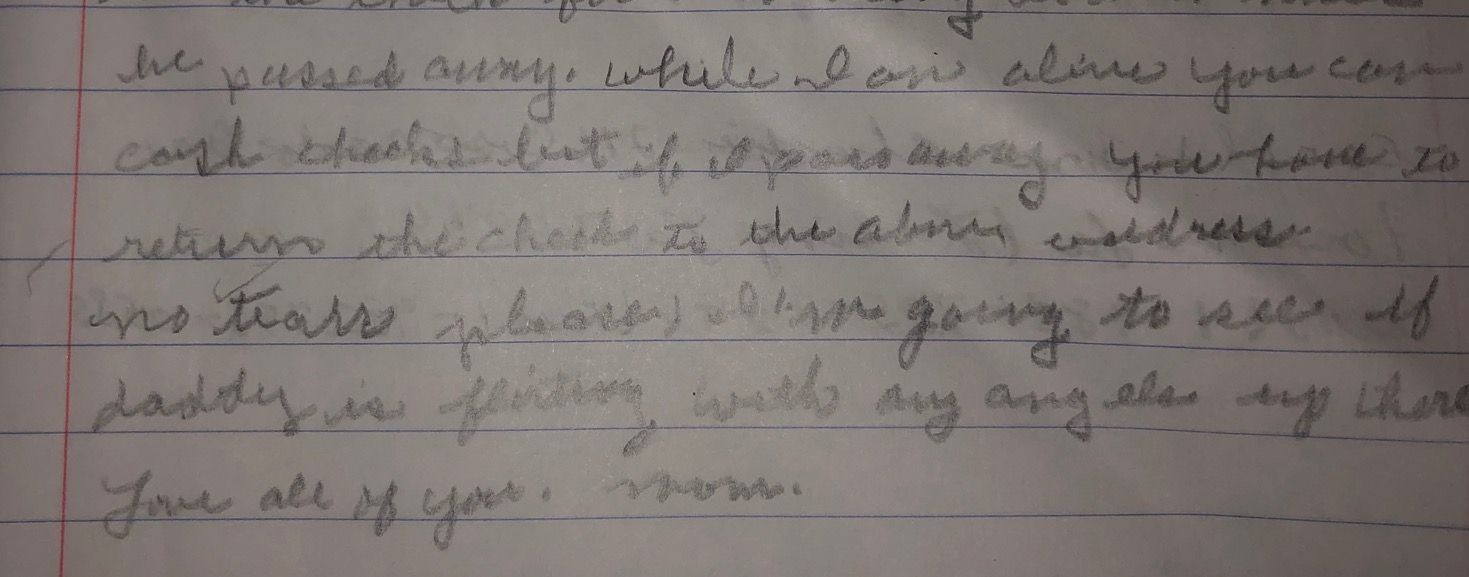 he passed away. while I am alive you can
cash checks but if I pass away you have to
return the check to the above address
no tears please, I'm going to see if
daddy is flirting with any angels up there
Love all of you. Mom.